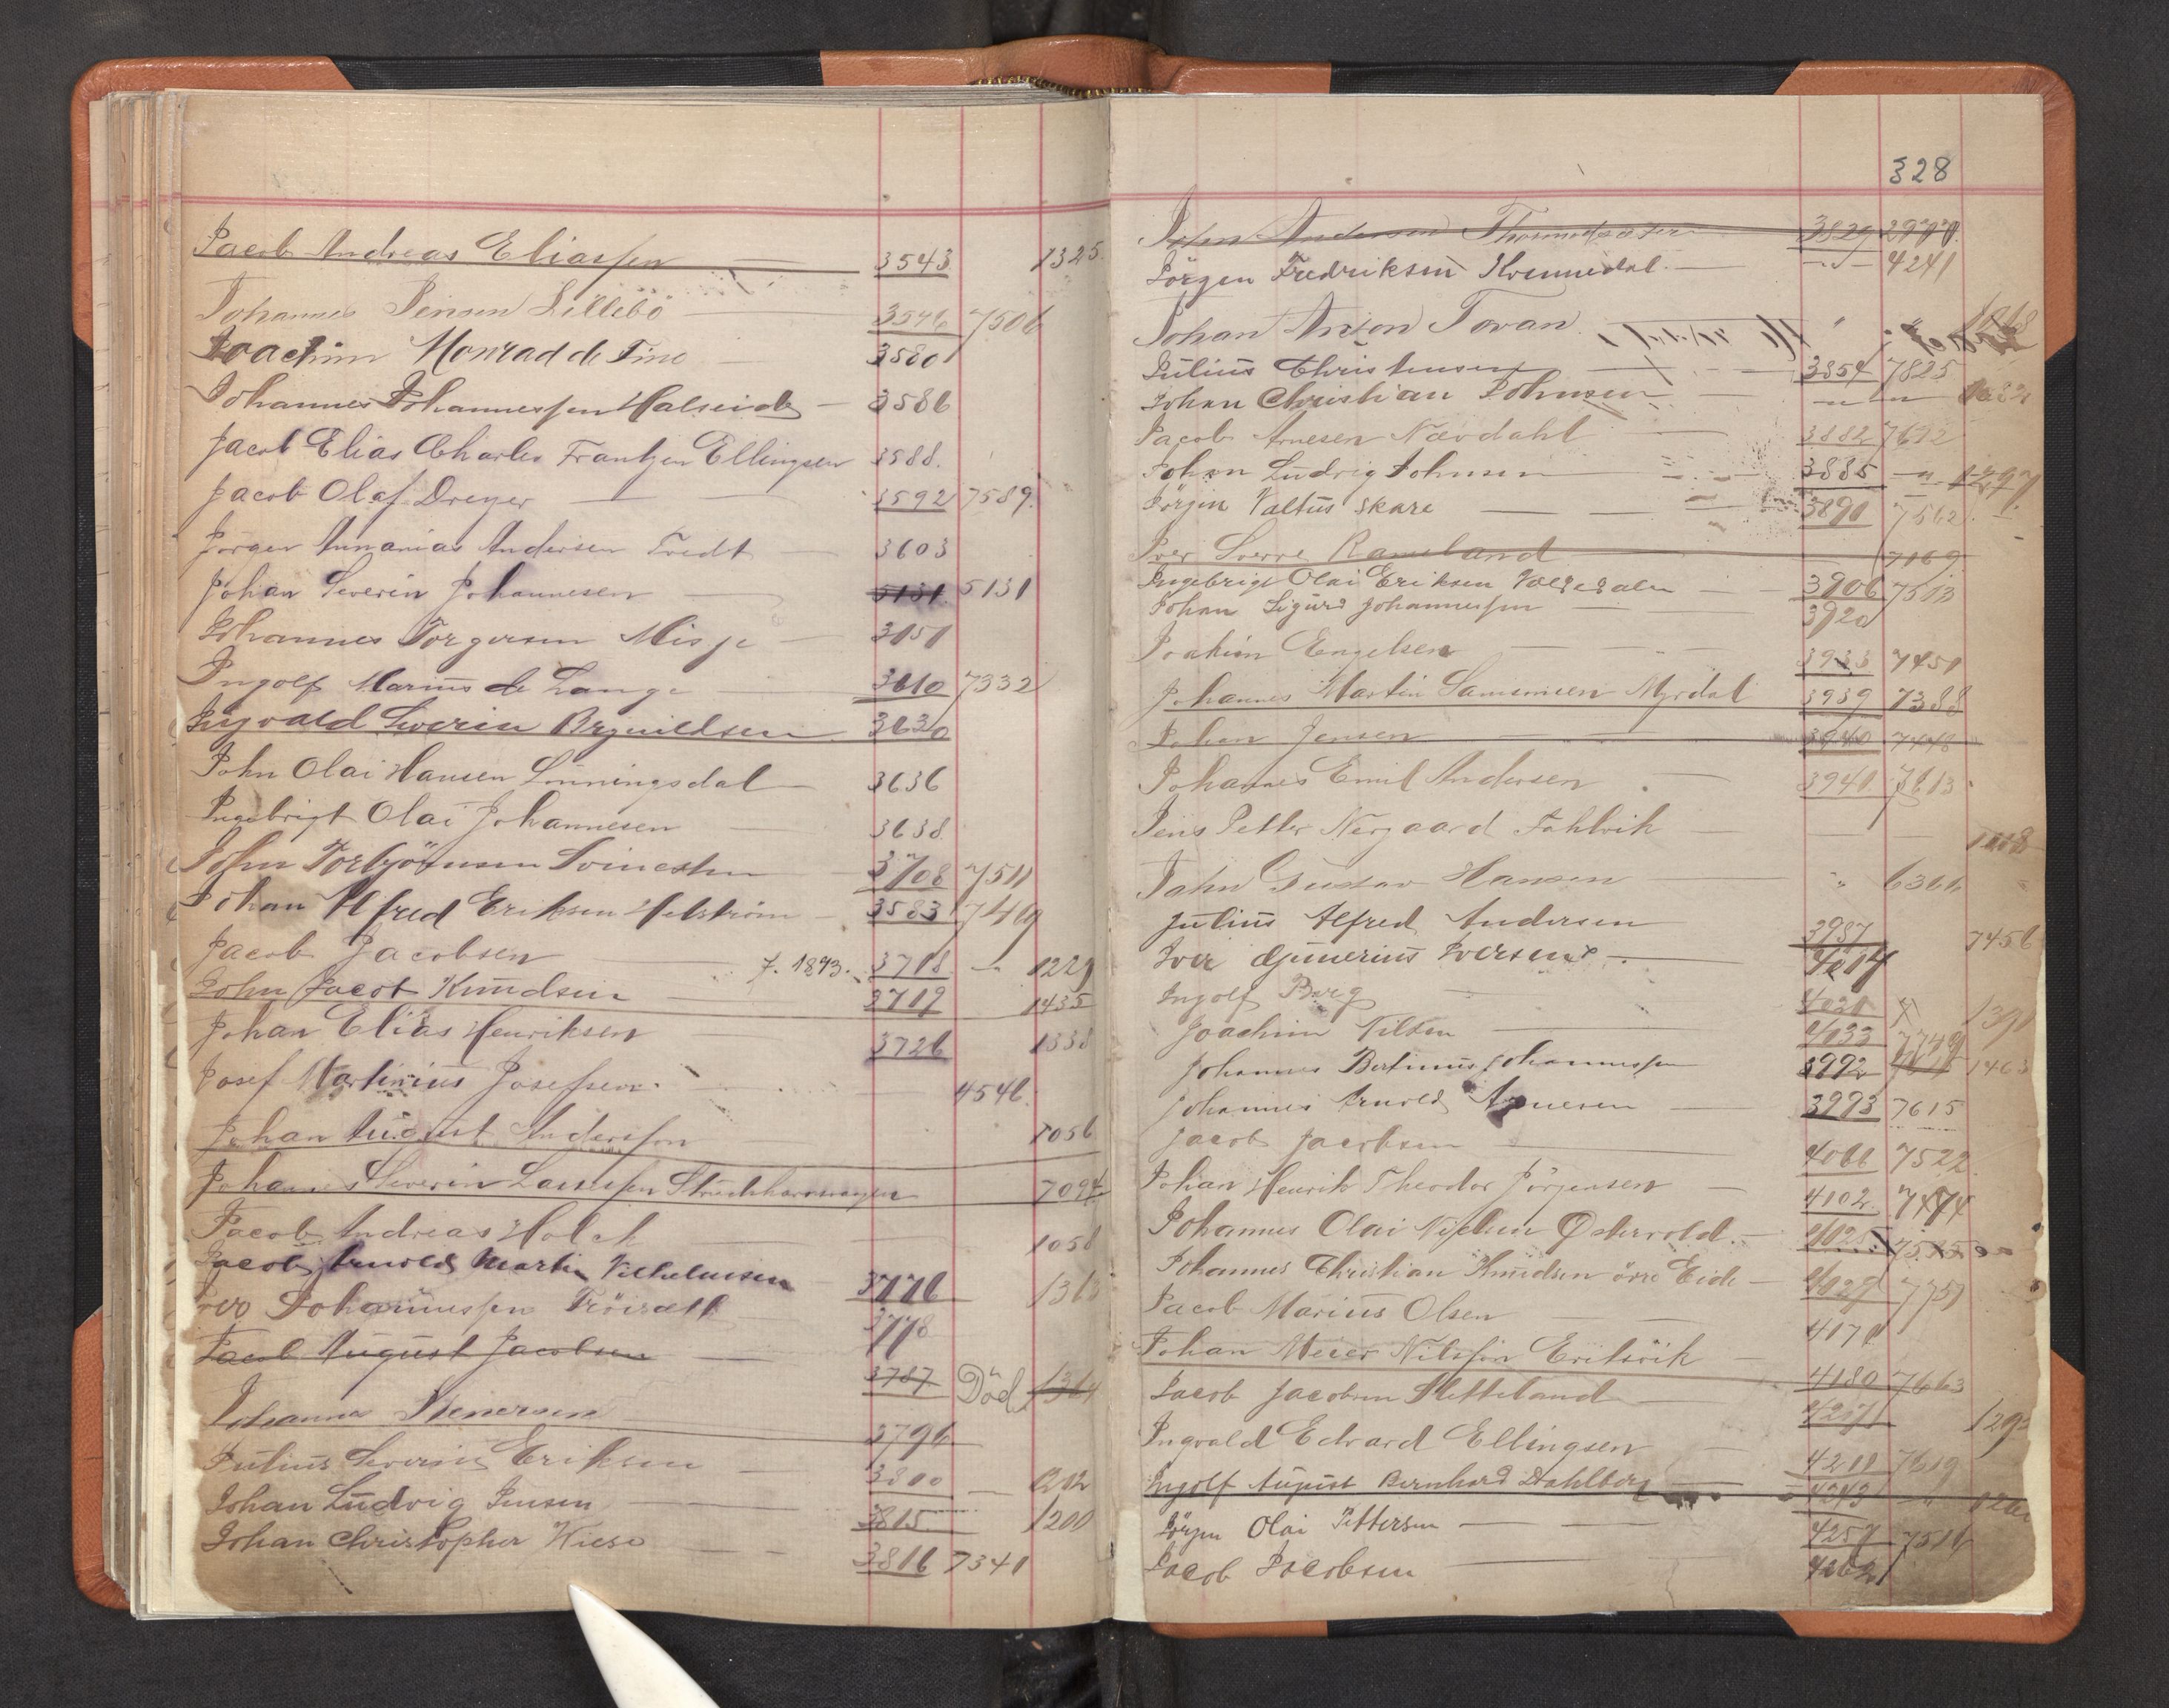 Jacob Andreas Eliassen — 3543 1325
Johannes Jensen Lillebö — 3546 7506
Joachim Monrad de Fine 3580
Johannes Johannessen Halseide — 3586
Jacob Elias Charles Frantzen Ellingsen 3588.
Jacob Olaf Dreyer — 3592 7589.
Jörgen Annanias Andersen Tvedt — 3603
Johan Severin Johannesen — 5131 5131
Johannes Torgersen Misje — 3151
Ingolf Marius de Lange — 3610 7332
Ingvald Severin Brynildsen 3630
John Olai Hansen Lönningsdal — 3636
Ingebrigt Olai Johannesen — 3638.
John Torbjörnsen 3708 7511
Johan Alfred Eriksen Helström — 3583 7469
Jacob Jacobsen — f. 1893. 3718 — 1229
John Jacob Knudsen — 3719 1435
Johan Elias Henriksen 3726 1338
Josef Martinius Josefsen. 4546.
Johan August Anderson 1056
Johannes Severin Lassesen 7094
Jacob Andreas Holck 1058
Jacob Arnold Martin Vilhelmsen 3776 1313
Iver Johannessen 3778
Jacob August Jacobsen — 3787 Död 1314
Johannes Stenersen 3796
Julius Severin Eriksen — 3800 — 1212
Johan Ludvig Jensen — 3815 1200
Johan Christopher Wiese — 3816 7341
328
John Andersen 3829 2970
Jörgen Fredriksen Kvennedal. — 4241
Johan Anton Tovan " "
Julius Christensen 3854 7825
Johan Christian Johnsen — 1082
Jacob Arnesen Nævdahl — 3882 7612
Johan Ludvig Johnsen 3885 — 1297
Jörgen Valtus Skare — 3890 7562
Iver Sverre Ramsland 7169
Ingebrigt Olai Eriksen 3906 7513
Johan Sigurd Johannessen — 3920
Joakim Engelsen — 3933 7451
Johannes Martin Samsonsen Myrdal 3939 7388
Johan Jensen — 3940 7448
Johannes Emil Andersen — 3941 7613
Jens Petter Nergaard Fahlvik — 1118
John Gustav Hansen — " 6361
Julius Alfred Andersen 3987 7456
Iver Gunerius Iversen — 4014
Ingolf Berg — 4021
Joachim Nilsen — 4033 7749
Johannes Bertinus Johannessen 3992 1463
Johannes Arnold Arnesen — 3993 7615
Jacob Jacobsen — 4066 7522
Johan Henrik Theodor Jörgensen — 4102 7474
Johannes Olai Nielsen Østervold. — 4125 7515
Johannes Christian Knudsen övre Eide — 4129 7751
Jacob Marius Olsen — 4171
Johan Meier Nilssön Eriksvik — 4180 7663
Jacob Jacobsen Sletteland — 4217 129
Ingvald Edvard Ellingsen — 4211 7619
Ingolf August Bernhard Dahlberg — 4243
Jörgen Olai Pettersen — 4257 7516
Jacob Jacobsen — 4262